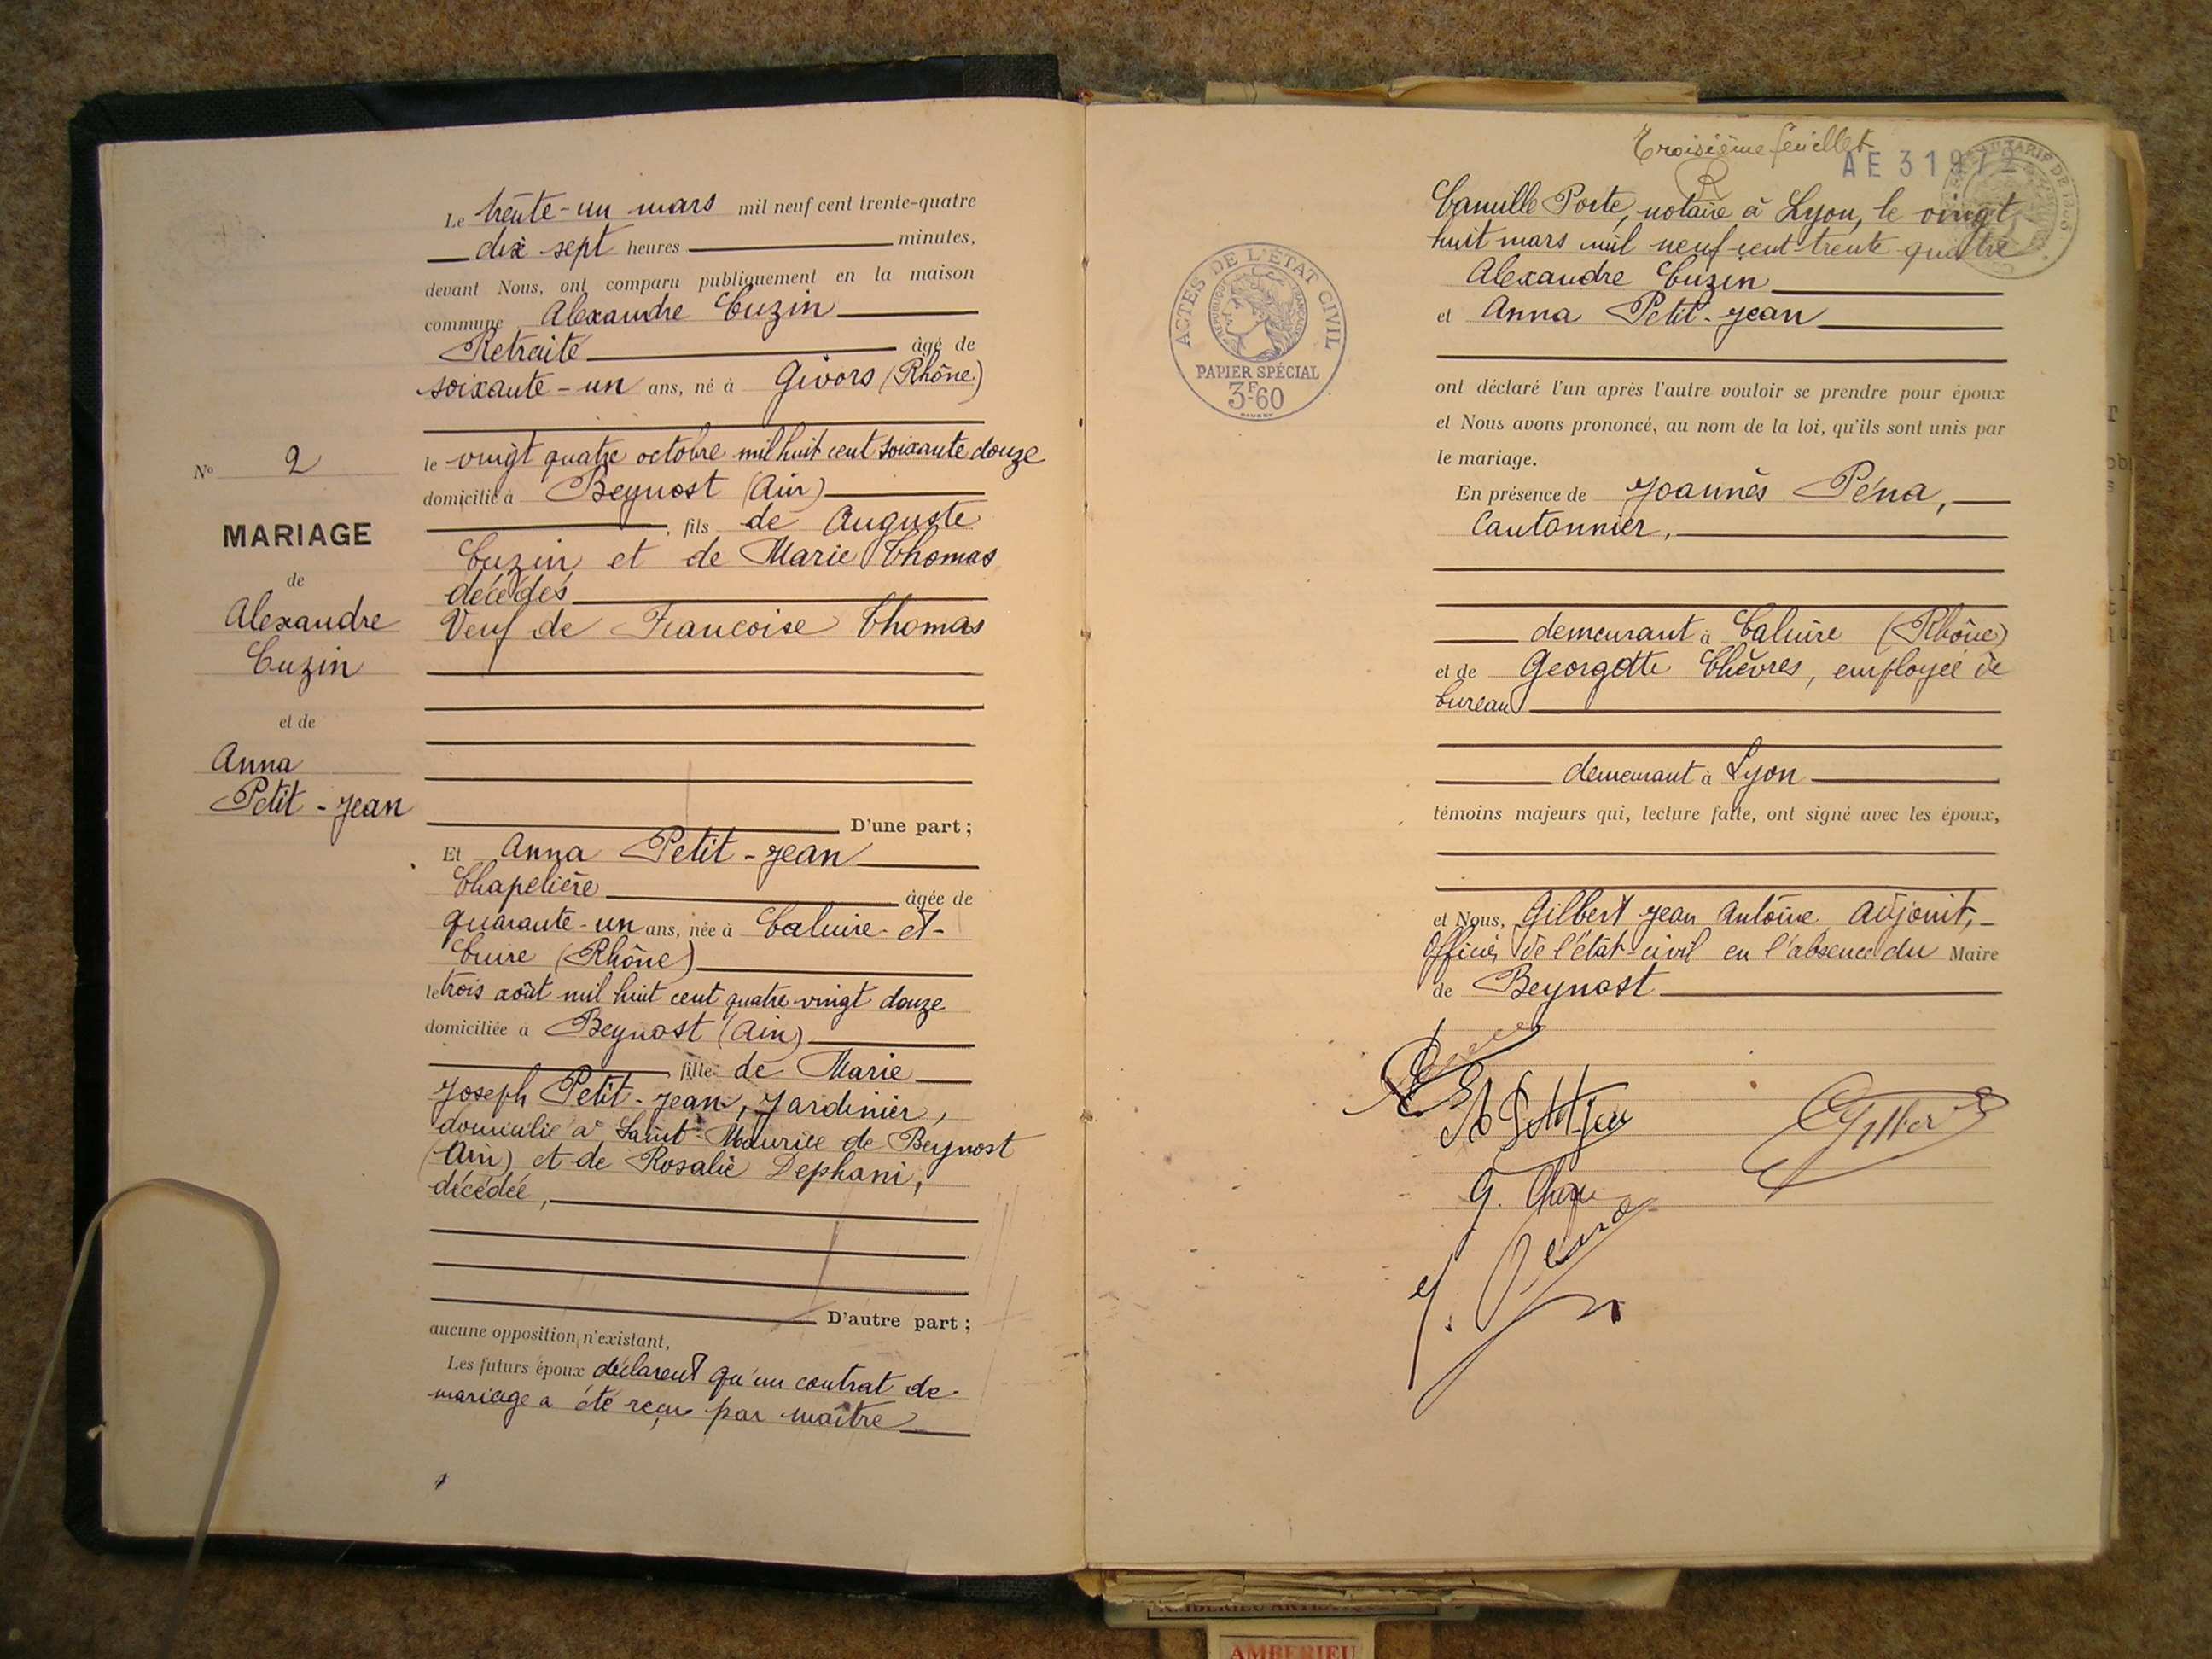 Le trente-un mars mil neuf cent trente-quatre
dix sept heures minutes,
devant Nous, ont comparu publiquement en la maison
commune Alexandre Cuzin
Retraité âgé de
soixante-un ans, né à Givors (Rhône)
le vingt quatre octobre mil huit cent soixante douze
domicilié à Beynost (Ain)
, fils de Auguste
Cuzin et de Marie Thomas
décédés
Veuf de Francoise Thomas
D'une part ;
Et Anna Petit-Jean
Chapelière âgée de
quarante-un ans, née à Caluire-et-
Cuire (Rhône)
le trois août mil huit cent quatre vingt douze
domiciliée à Beynost (Ain)
fille de Marie
Joseph Petit-Jean, Jardinier,
domicilié à Saint-Maurice de Beynost
(Ain) et de Rosalie Dephani,
décédée,
D'autre part ;
aucune opposition n'existant,
Les futurs époux déclarent qu'un contrat de
mariage a été reçu par maître
No 2
MARIAGE
de
Alexandre
Cuzin
et de
Anna
Petit-Jean
Troisième feuillet
AE 31972
ACTES DE L'ÉTAT CIVIL
RÉPUBLIQUE FRANÇAISE
PAPIER SPÉCIAL
3F.60
Camille Porte, notaire à Lyon, le vingt
huit mars mil neuf cent trente quatre
Alexandre Cuzin
et Anna Petit-Jean
ont déclaré l'un après l'autre vouloir se prendre pour époux
et Nous avons prononcé, au nom de la loi, qu'ils sont unis par
le mariage.
En présence de Joannès Péna,
Cantonnier,
demeurant à Caluire (Rhône)
et de Georgette Chèvres, employée de
bureau
demeurant à Lyon
témoins majeurs qui, lecture faite, ont signé avec les époux,
et Nous, Gilbert Jean Antoine Adjoint,
Officier de l'état-civil en l'absence du Maire
de Beynost
A Petitjean
J. Pena
Gilbert
AMBERIEU